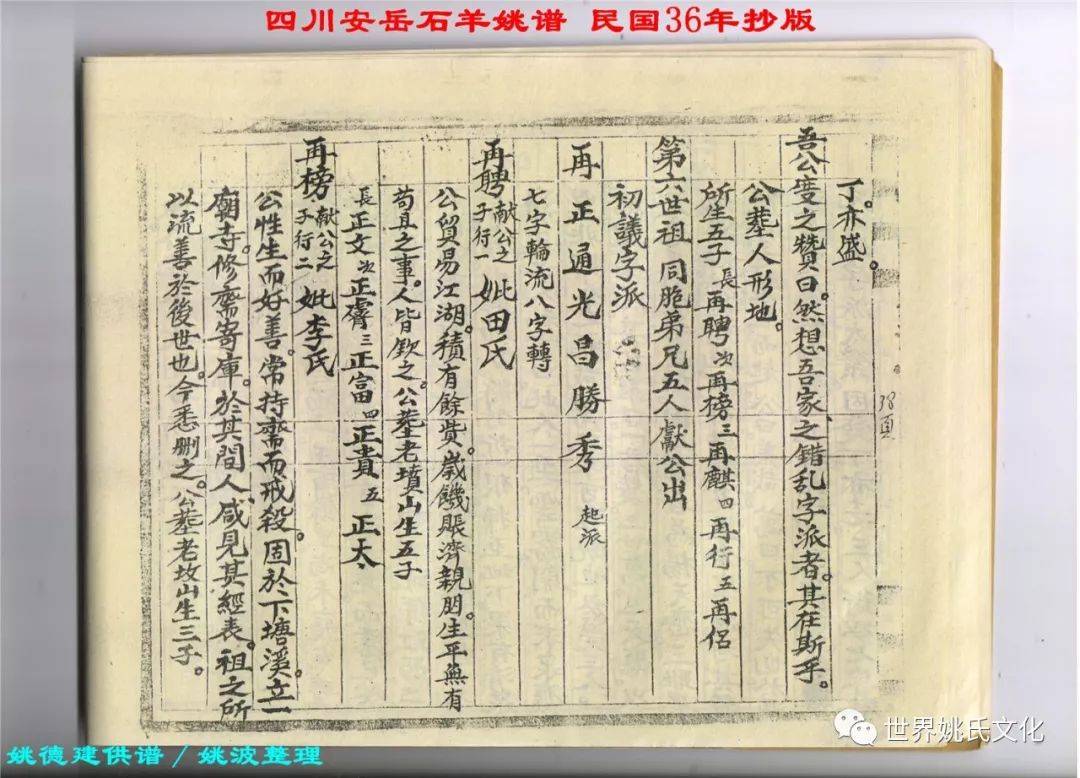 四川安岳石羊姚谱 民国36年抄版
丁。亦盛。
吾公度之贊曰。然想吾家之錯乱字派者。其在斯乎。
公塟人形地。
所生五子 長再聘 次再榜 三再麒 四再行 五再侶
第六世祖 同胞弟兄五人獻公出
初議字派
再正通光昌勝秀 起派
七字輪流八字轉
再聘 献公之子行一 妣田氏
公貿易江湖。積有餘貲。歲饑賑濟親朋。生平無有
苟且之事。人皆欽之。公塟老墳山生五子
長正文 次正 三正富 四正貴 五正太
再榜 献公之子行二 妣李氏
公性生而好善。常持齋而戒殺。固於下塘溪。立一
廟寺。修齋寄庫。於其間人咸見其經表。祖之所
以流善於後世也。今悉删之。公塟老坟山生三子。
38頁
姚德建供谱/姚波整理
世界姚氏文化